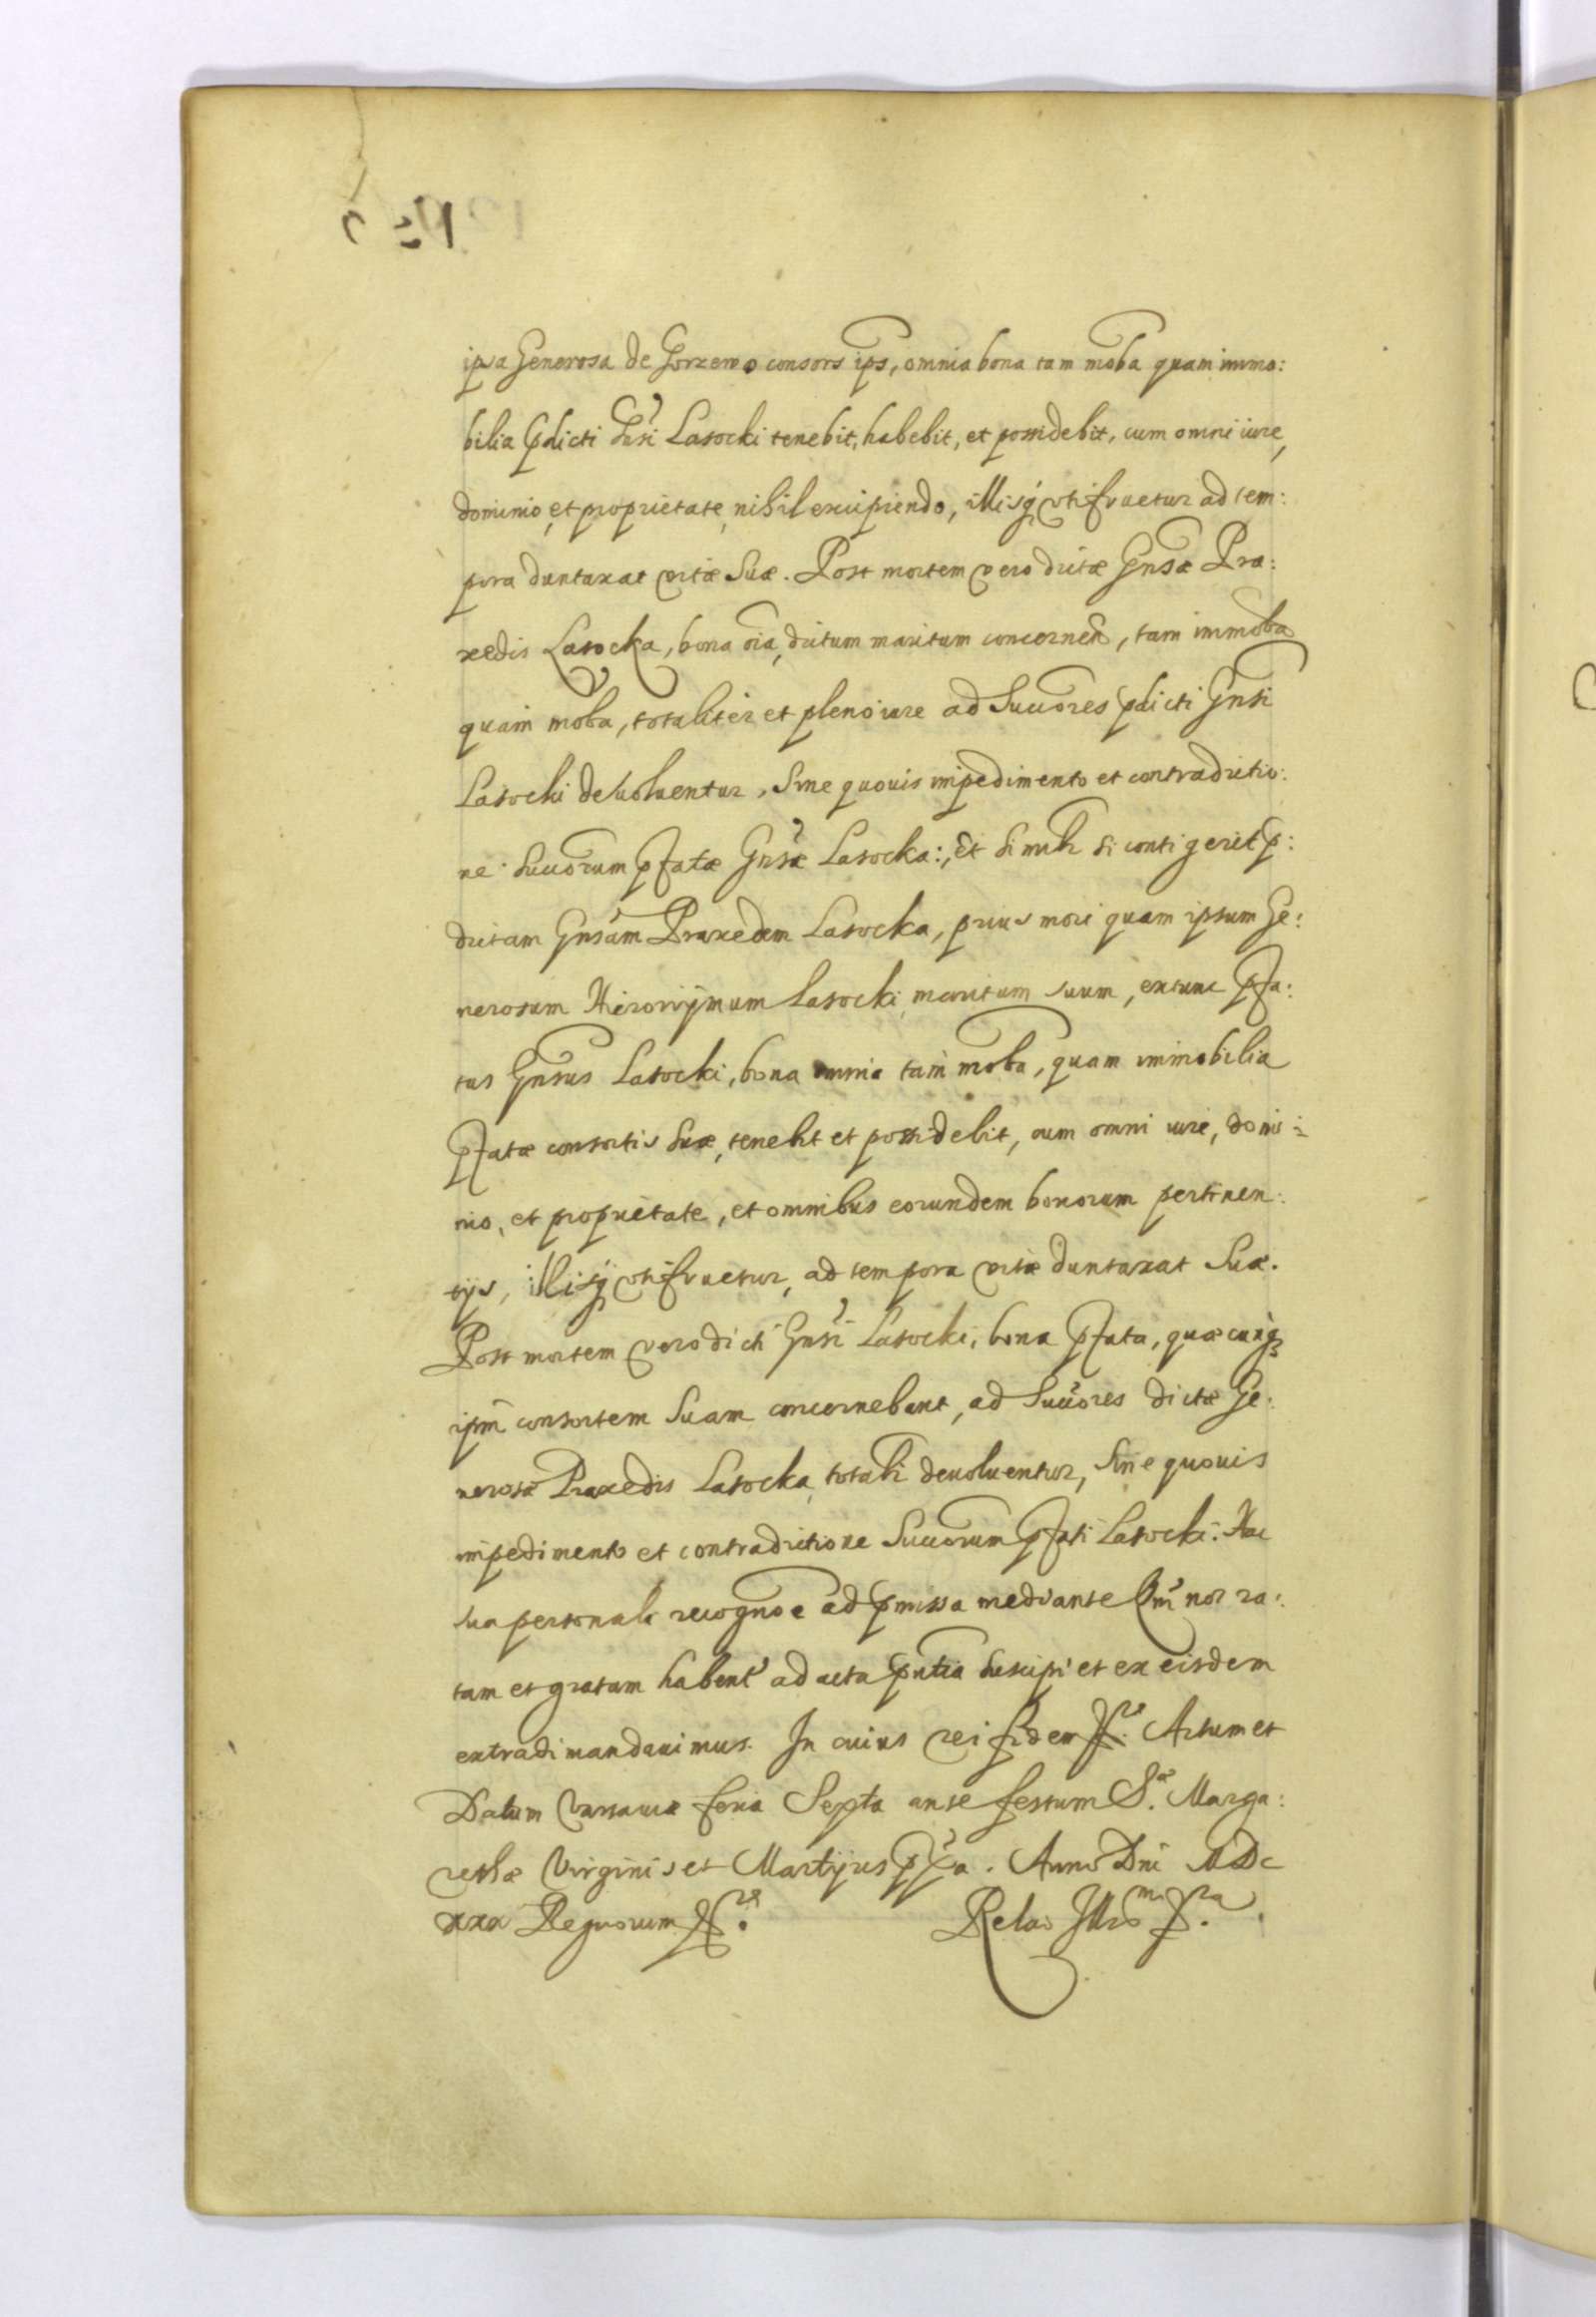 ipsa Generosa de Gorzewo consors ips, omnia bona tam moba quam immo:
bilia pdicti Gnsi Lasocki tenebit, habebit, et possidebit, cum omni iure,
dominio, et proprietate, nihil excipiendo, illisq vtifruetur ad tem:
pora duntaxat vitæ Suæ. Post mortem vero dictæ Gnsæ Pra:
xedis Lasocka, bona oia, dictum maritum concernen, tam immoba
quam moba, totaliter et pleno iure ad Succores pdicti Gnsi
Lasocki deuoluentur, Sine quouis impedimento et contradictio:
ne Succorum pfatæ Gnsæ Lasocka: Et simili si contigerit p:
dictam Gnsam Praxedem Lasocka, prius mori quam ipsum Ge:
nerosum Hieronymum Lasocki maritum suum, extunc pfa:
tus Gnsus Lasocki, bona omnia tam moba, quam immobilia
pfatæ consortis Suæ, tenebit et possidebit, cum omni iure, domi:
nio, et proprietate, et omnibus eorundem bonorum pertinen:
tijs, illisq vtifruetur, ad tempora vitæ duntaxat Suæ.
Post mortem vero dicti Gnsi Lasocki, bona pfata, quæcunq
ipm consortem Suam concernebant, ad Succores dictæ Ge:
nerosæ Praxedis Lasocka, totali deuoluentur, Sine quouis
impedimento et contradictione Succorum pfati Lasocki. Hac
sua personali recogne ad pmissa mediante Qm nos ra:
tam et gratam haben ad acta pntia Suscipi et ex eisdem
extradi mandauimus. In cuius rei fidem Actum et
Datum Varsauiæ feria Sexta ante festum S. Marga:
rethæ Virginis et Martyris pxa. Anno Dni MDC
xxx Regnorum
Relao Illro